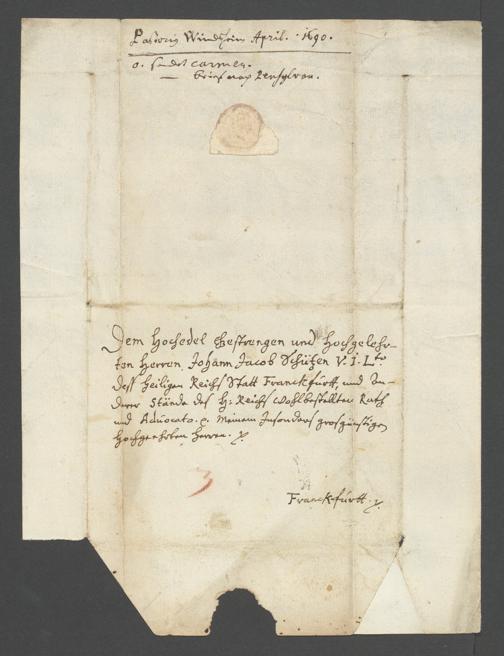 Pastorij Windsheim April. 1690.
o. sendet carmen.
— brief nach Pensylvan.
Dem HochEdel Gestrengen und Hochgelehr-
ten Herren, Johann Jacob Schützen V. I. Lto
dess Heiligen Reichs Statt Franckfürtt, und An-
derer Stände des H: Reichs Wohlbestelltem Rath
und Advocato. p. Meinem Insonders grosgünstigen
Hochgeehrten Herren. p.
3
Franckfürtt. p.